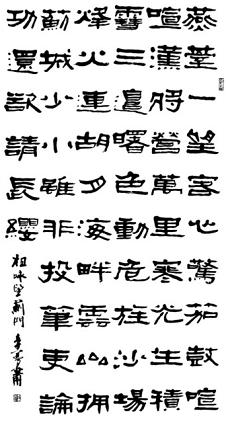 燕臺一望客心驚笳鼓喧
喧漢將營萬里寒光生積
雪三邊曙色動危旌沙場
烽火連胡月海畔雲山擁
薊城少小雖非投筆吏論
功還欲請長纓
祖詠望薊門